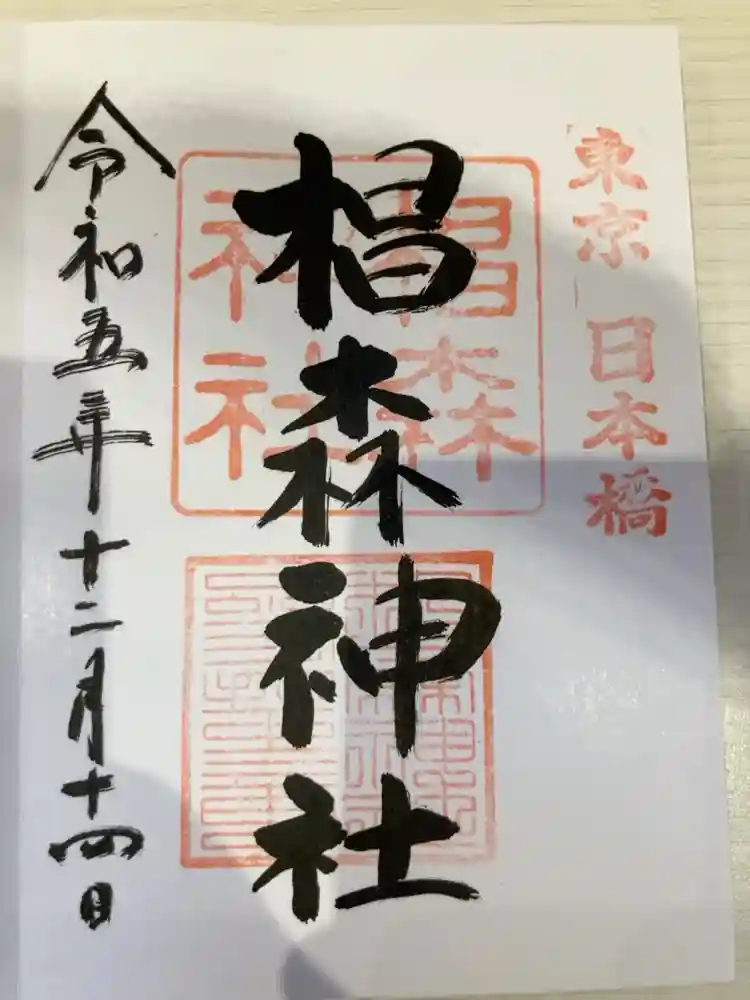 東京 日本橋
椙森神社
椙森
神社
令和五年十二月十四日